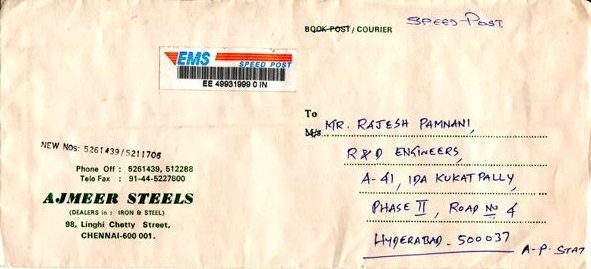 SPEED POST
BOOK-POST / COURIER
EMS SPEED POST
EE 49931999 0 IN
To
M/s MR. RAJESH PAMNANI,
R&D ENGINEERS,
A-41, IDA KUKATPALLY,
PHASE II, ROAD No 4
HYDERABAD-500037
A-P. STAT
NEW Nos: 5261439/5211706
Phone Off : 5261439, 512288
Tele Fax : 91-44-5227800
AJMEER STEELS
(DEALERS in : IRON & STEEL)
98, Linghi Chetty Street,
CHENNAI-600 001.